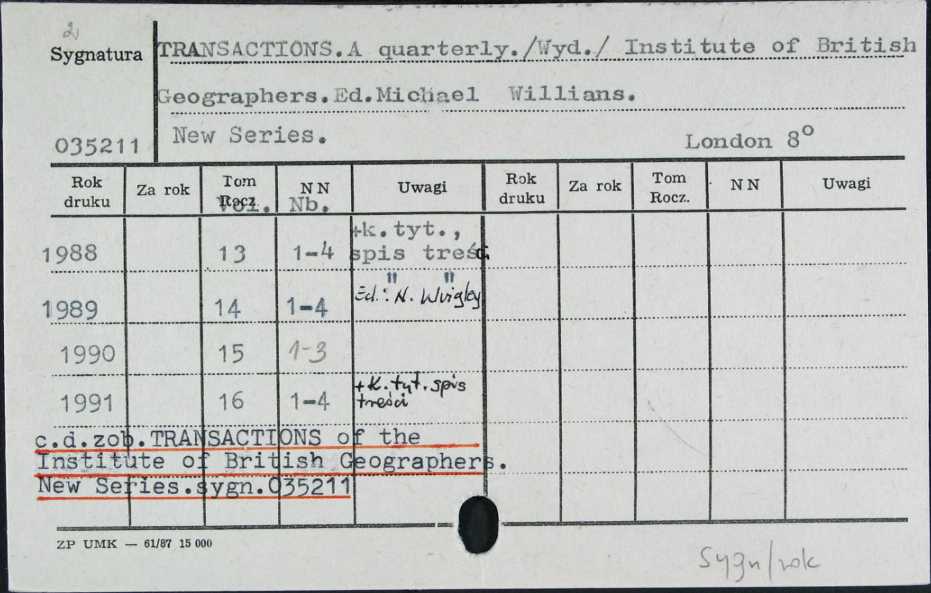 2
Sygnatura
TRANSACTIONS.A quarterly./Wyd./ Institute of British
Geographers.Ed.Michael Willians.
035211
New Series.
London 8°
Rok druku Za rok Tom Rocz. NN Uwagi Rok druku Za rok Tom Rocz. NN Uwagi
Vol. Nb.
+k.tyt.,
1988 13 1-4 spis treść
" "
1989 14 1-4 Ed.: N. Wrigley
1990 15 1-3
1991 16 1-4 +k.tyt.spis
treści
c.d.zob.TRANSACTIONS of the
Institute of British Geographers.
New Series.sygn.035211
ZP UMK — 61/87 15 000
Sygn/rok